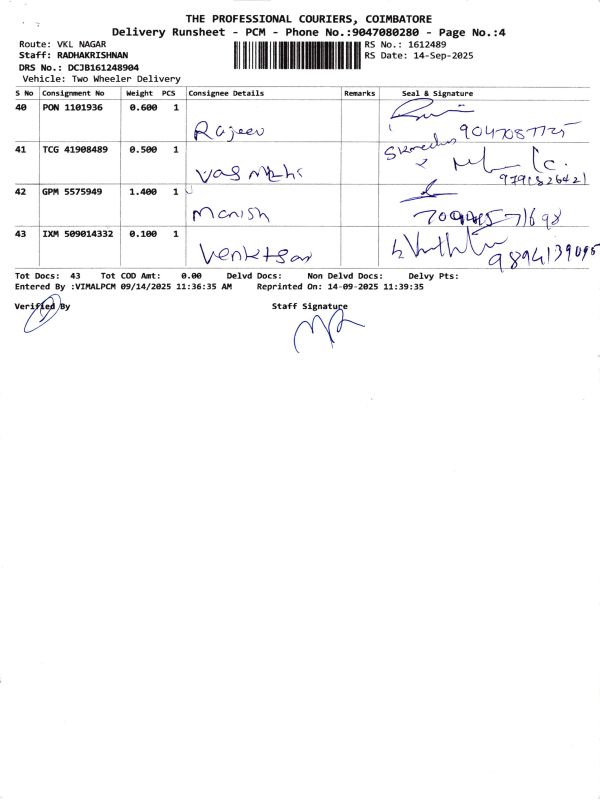 THE PROFESSIONAL COURIERS, COIMBATORE
Delivery Runsheet - PCM - Phone No.:9047080280 - Page No.:4
Route: VKL NAGAR RS No.: 1612489
Staff: RADHAKRISHNAN RS Date: 14-Sep-2025
DRS No.: DCJB161248904
Vehicle: Two Wheeler Delivery
S No Consignment No Weight PCS Consignee Details Remarks Seal & Signature
40 PON 1101936 0.600 1
Rajeev
41 TCG 41908489 0.500 1
9791826421
42 GPM 5575949 1.400 1
Manish
43 IXM 509014332 0.100 1
Tot Docs: 43 Tot COD Amt: 0.00 Delvd Docs: Non Delvd Docs: Delvy Pts:
Entered By :VIMALPCM 09/14/2025 11:36:35 AM Reprinted On: 14-09-2025 11:39:35
Verified By Staff Signature